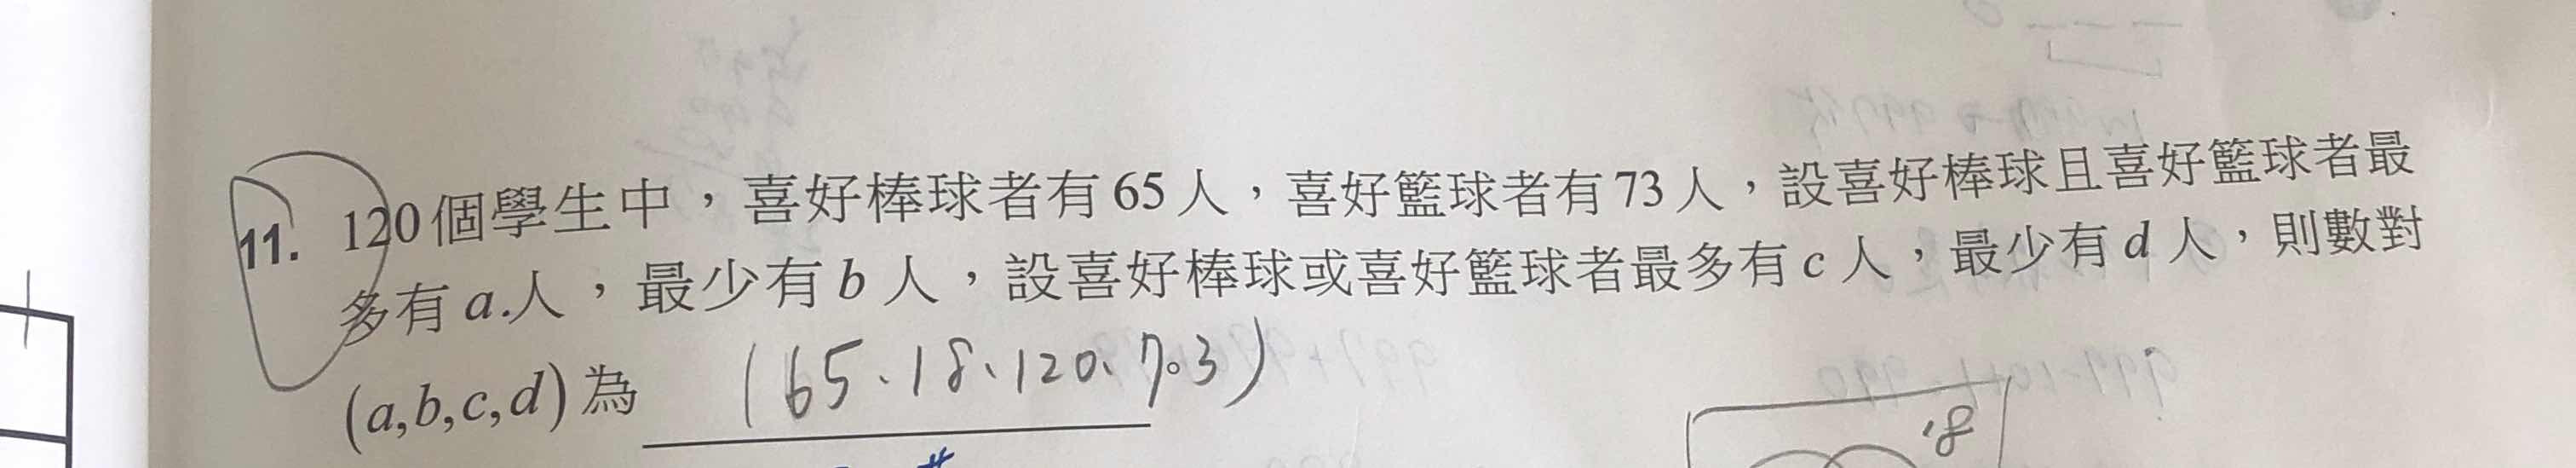 11. 120個學生中，喜好棒球者有65人，喜好籃球者有73人，設喜好棒球且喜好籃球者最
多有a.人，最少有b人，設喜好棒球或喜好籃球者最多有c人，最少有d人，則數對
(a,b,c,d)為 (65、18、120、73)
18